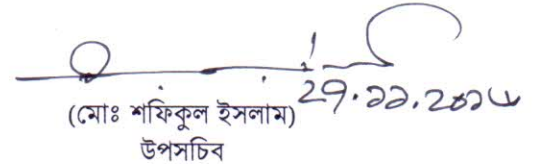 ২৭.১১.২০১৮
(মোঃ শফিকুল ইসলাম)
উপসচিব